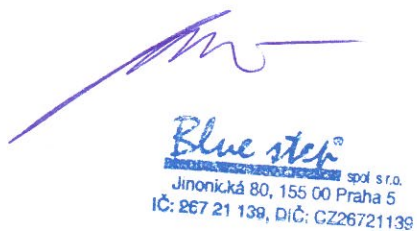 Blue step®
spol s r.o.
Jinonická 80, 155 00 Praha 5
IČ: 267 21 139, DIČ: CZ26721139